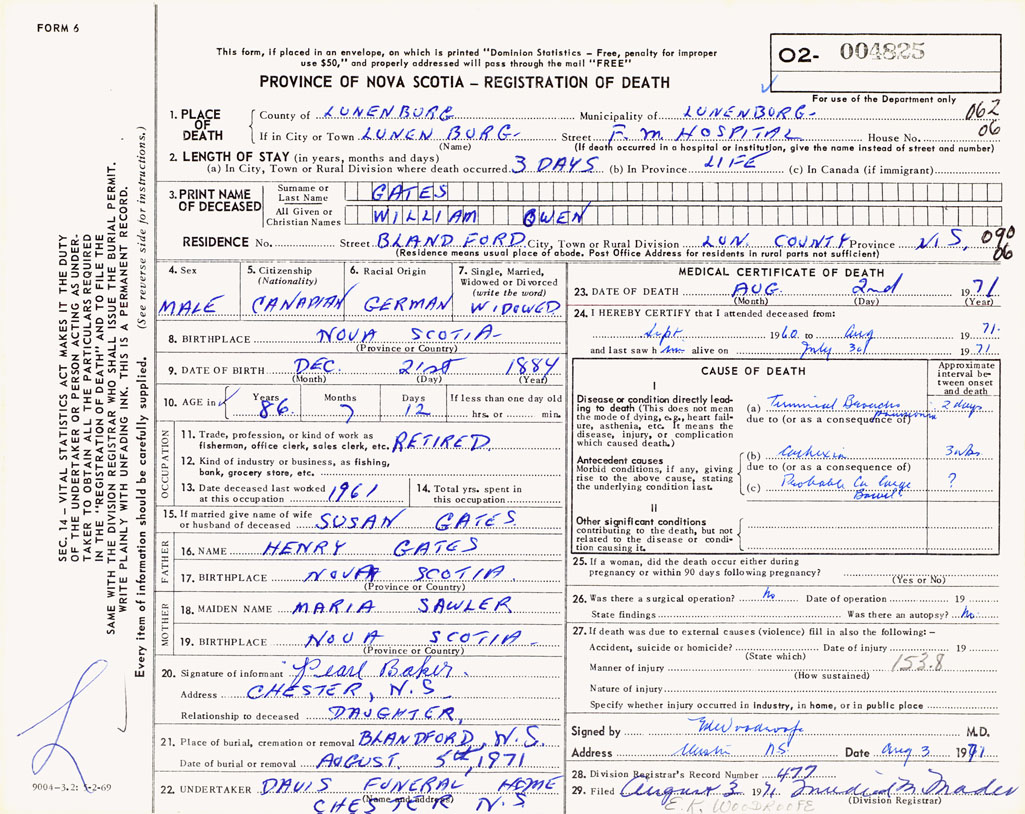 FORM 6
This form, if placed in an envelope, on which is printed "Dominion Statistics – Free, penalty for improper
use $50," and properly addressed will pass through the mail "FREE"
PROVINCE OF NOVA SCOTIA – REGISTRATION OF DEATH
02- 004825
For use of the Department only
SEC. 14 – VITAL STATISTICS ACT MAKES IT THE DUTY
OF THE UNDERTAKER OR PERSON ACTING AS UNDER-
TAKER TO OBTAIN ALL THE PARTICULARS REQUIRED
IN THE "REGISTRATION OF DEATH" AND TO FILE THE
SAME WITH THE DIVISION REGISTRAR WHO SHALL ISSUE THE BURIAL PERMIT.
WRITE PLAINLY WITH UNFADING INK. THIS IS A PERMANENT RECORD.
Every item of information should be carefully supplied. (See reverse side for instructions.)
1. PLACE OF DEATH
County of LUNENBURG Municipality of LUNENBURG 062
If in City or Town LUNENBURG Street F. M. HOSPITAL House No. 06
(Name) (If death occurred in a hospital or institution, give the name instead of street and number)
2. LENGTH OF STAY (in years, months and days)
(a) In City, Town or Rural Division where death occurred 3 DAYS (b) In Province LIFE (c) In Canada (if immigrant)
3. PRINT NAME OF DECEASED
Surname or Last Name GATES
All Given or Christian Names WILLIAM OWEN
RESIDENCE No. Street BLANDFORD City, Town or Rural Division LUN. COUNTY Province N.S, 090
(Residence means usual place of abode. Post Office Address for residents in rural parts not sufficient) 06
4. Sex MALE
5. Citizenship (Nationality) CANADIAN
6. Racial Origin GERMAN
7. Single, Married, Widowed or Divorced (write the word) WIDOWED
8. BIRTHPLACE NOVA SCOTIA
(Province or Country)
9. DATE OF BIRTH DEC. 21st 1884
(Month) (Day) (Year)
10. AGE in Years 86 Months 7 Days 12 If less than one day old hrs. or min.
OCCUPATION
11. Trade, profession, or kind of work as
fisherman, office clerk, sales clerk, etc. RETIRED
12. Kind of industry or business, as fishing,
bank, grocery store, etc.
13. Date deceased last worked at this occupation 1961
14. Total yrs. spent in this occupation
15. If married give name of wife
or husband of deceased SUSAN GATES
FATHER
16. NAME HENRY GATES
17. BIRTHPLACE NOVA SCOTIA.
(Province or Country)
MOTHER
18. MAIDEN NAME MARIA SAWLER
19. BIRTHPLACE NOVA SCOTIA
(Province or Country)
20. Signature of informant Pearl Baker.
Address CHESTER, N.S
Relationship to deceased DAUGHTER,
21. Place of burial, cremation or removal BLANDFORD, N.S.
Date of burial or removal AUGUST 5th, 1971
22. UNDERTAKER DAVIS FUNERAL HOME
(Name and address)
CHESTER N.S
9004-3.2: 1-2-69
MEDICAL CERTIFICATE OF DEATH
23. DATE OF DEATH AUG. 2nd 1971
(Month) (Day) (Year)
24. I HEREBY CERTIFY that I attended deceased from:
Sept 1960 to Aug 1971.
and last saw him alive on July 31 1971
CAUSE OF DEATH
Approximate interval between onset and death
I
Disease or condition directly lead-
ing to death (This does not mean
the mode of dying, e.g., heart fail-
ure, asthenia, etc. It means the
disease, injury, or complication
which caused death.)
(a) Terminal Broncho pneumonia 2 days
due to (or as a consequence of)
Antecedent causes
Morbid conditions, if any, giving
rise to the above cause, stating
the underlying condition last.
(b) Cachexia 3 wks
due to (or as a consequence of)
(c) Probable Ca large Bowel ?
II
Other significant conditions
contributing to the death, but not
related to the disease or condi-
tion causing it.
25. If a woman, did the death occur either during
pregnancy or within 90 days following pregnancy?
(Yes or No)
26. Was there a surgical operation? No Date of operation 19
State findings Was there an autopsy? No
27. If death was due to external causes (violence) fill in also the following: –
Accident, suicide or homicide? Date of injury 19
(State which) 153.8
Manner of injury
(How sustained)
Nature of injury
Specify whether injury occurred in industry, in home, or in public place
Signed by EKWoodroofe M.D.
Address NS Date Aug 3 1971
28. Division Registrar's Record Number 477
29. Filed August 3 1971 Mader
(Division Registrar)
E.K. WOODROOFE